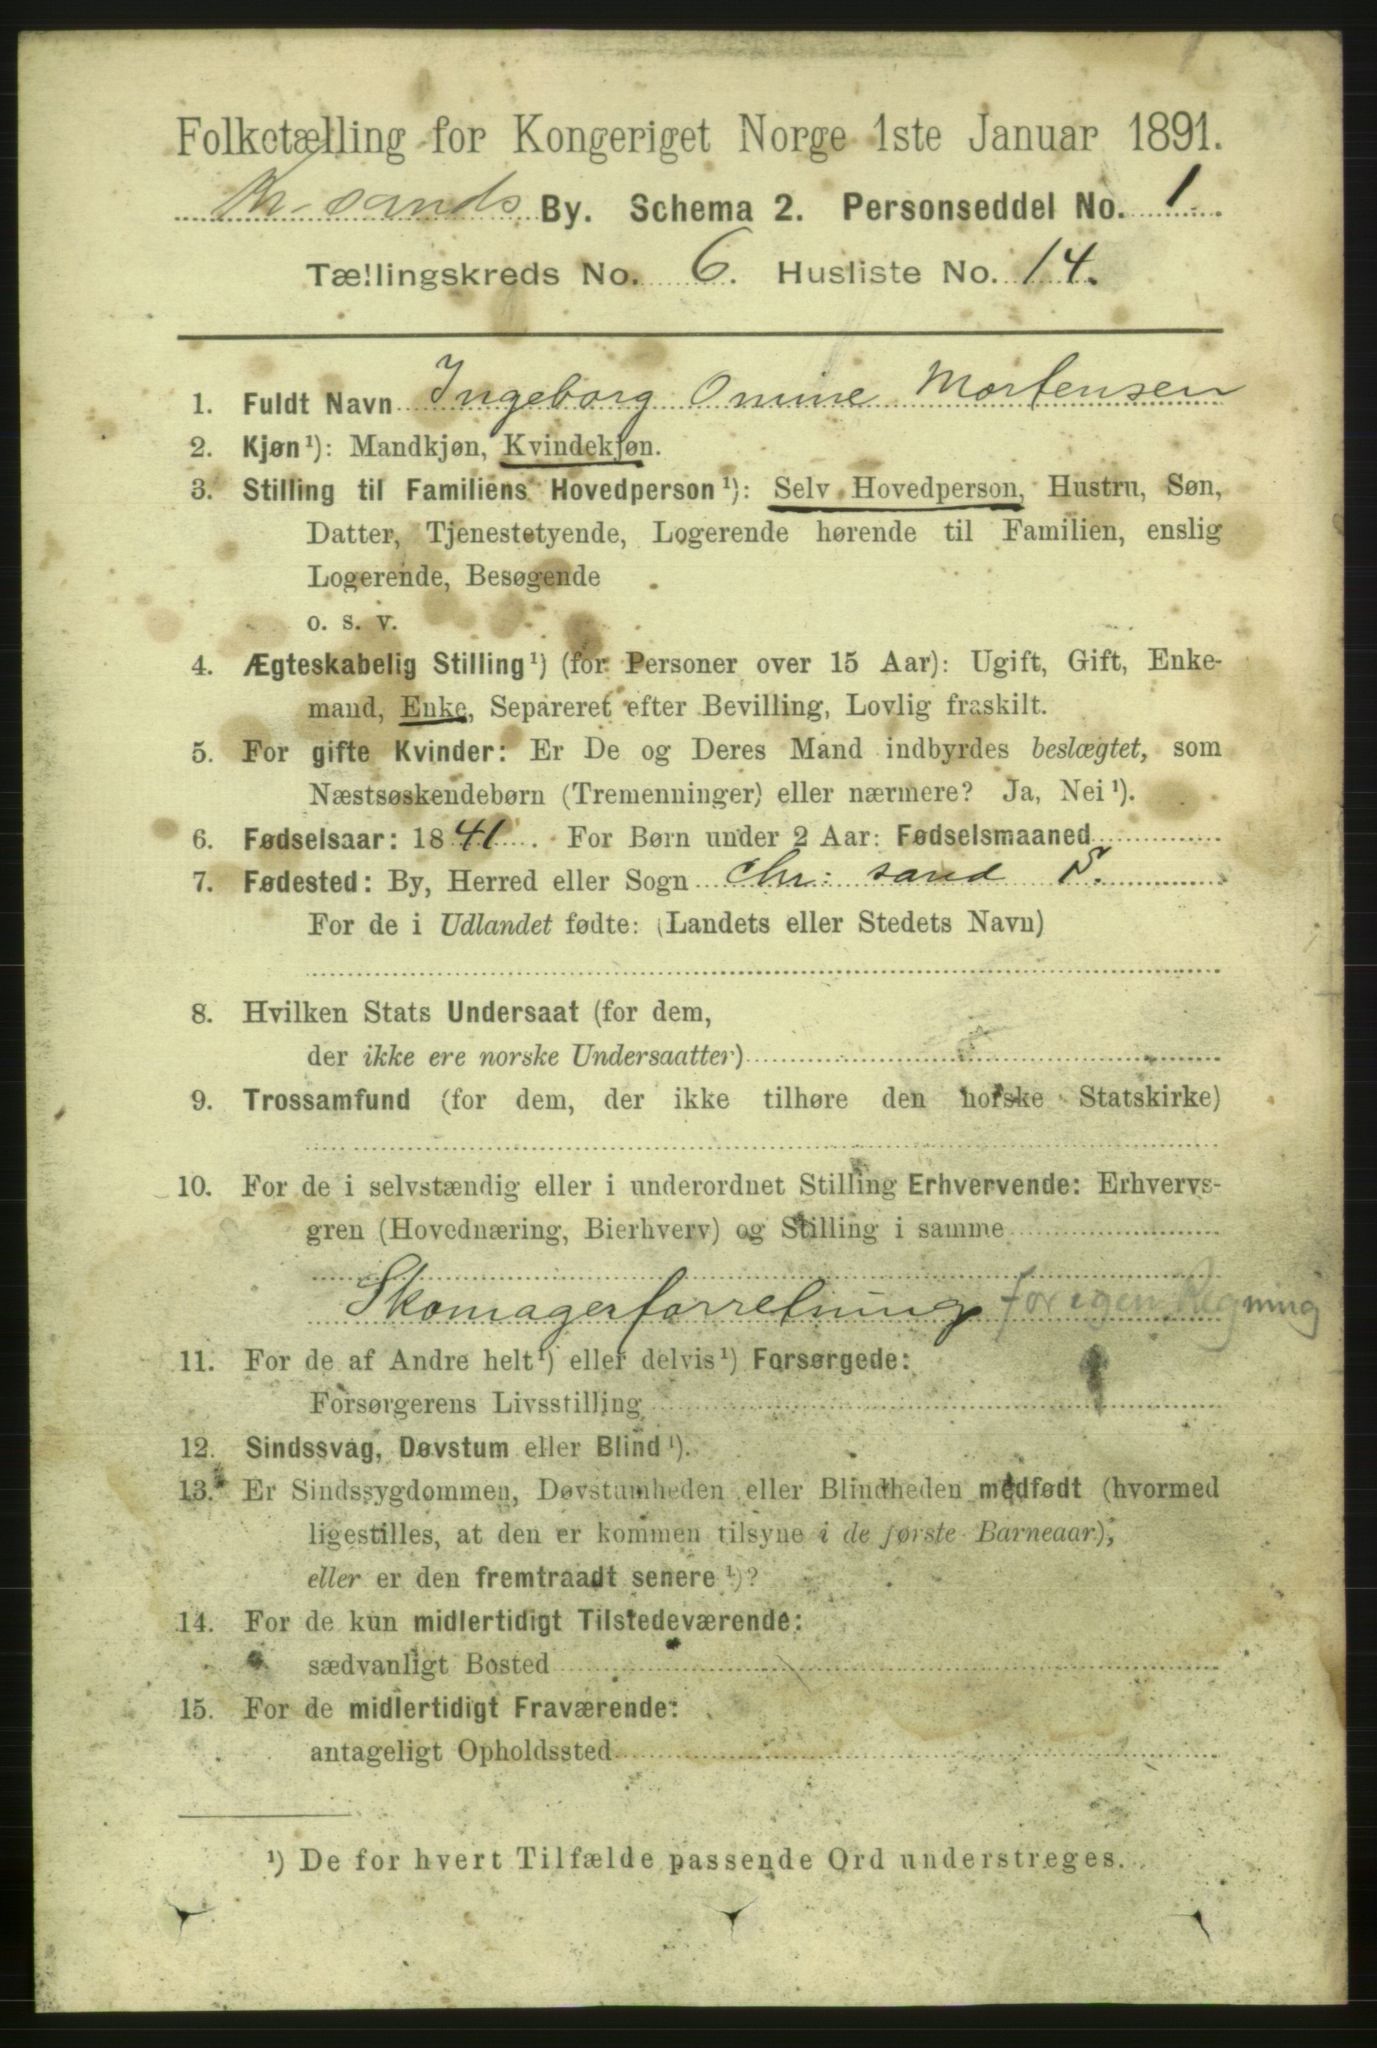 Folketælling for Kongeriget Norge 1ste Januar 1891.
Kr. sands By. Schema 2. Personseddel No. 1.
Tællingskreds No. 6. Husliste No. 14.
1. Fuldt Navn Ingeborg Omine Mortensen
2. Kjøn¹): Mandkjøn, Kvindekjøn.
3. Stilling til Familiens Hovedperson¹): Selv Hovedperson, Hustru, Søn,
Datter, Tjenestetyende, Logerende hørende til Familien, enslig
Logerende, Besøgende
o. s. v.
4. Ægteskabelig Stilling¹) (for Personer over 15 Aar): Ugift, Gift, Enke-
mand, Enke, Separeret efter Bevilling, Lovlig fraskilt.
5. For gifte Kvinder: Er De og Deres Mand indbyrdes beslægtet, som
Næstsøskendebørn (Tremenninger) eller nærmere? Ja, Nei¹).
6. Fødselsaar: 1841. For Børn under 2 Aar: Fødselsmaaned
7. Fødested: By, Herred eller Sogn Chr: sand S.
For de i Udlandet fødte: (Landets eller Stedets Navn)
8. Hvilken Stats Undersaat (for dem,
der ikke ere norske Undersaatter)
9. Trossamfund (for dem, der ikke tilhøre den norske Statskirke)
10. For de i selvstændig eller i underordnet Stilling Erhvervende: Erhvervs-
gren (Hovednæring, Bierhverv) og Stilling i samme
Skomagerforretning for egen Regning
11. For de af Andre helt¹) eller delvis¹) Forsørgede:
Forsørgerens Livsstilling
12. Sindssvag, Døvstum eller Blind¹).
13. Er Sindssygdommen, Døvstumheden eller Blindheden medfødt (hvormed
ligestilles, at den er kommen tilsyne i de første Barneaar),
eller er den fremtraadt senere¹)?
14. For de kun midlertidigt Tilstedeværende:
sædvanligt Bosted
15. For de midlertidigt Fraværende:
antageligt Opholdssted
¹) De for hvert Tilfælde passende Ord understreges.